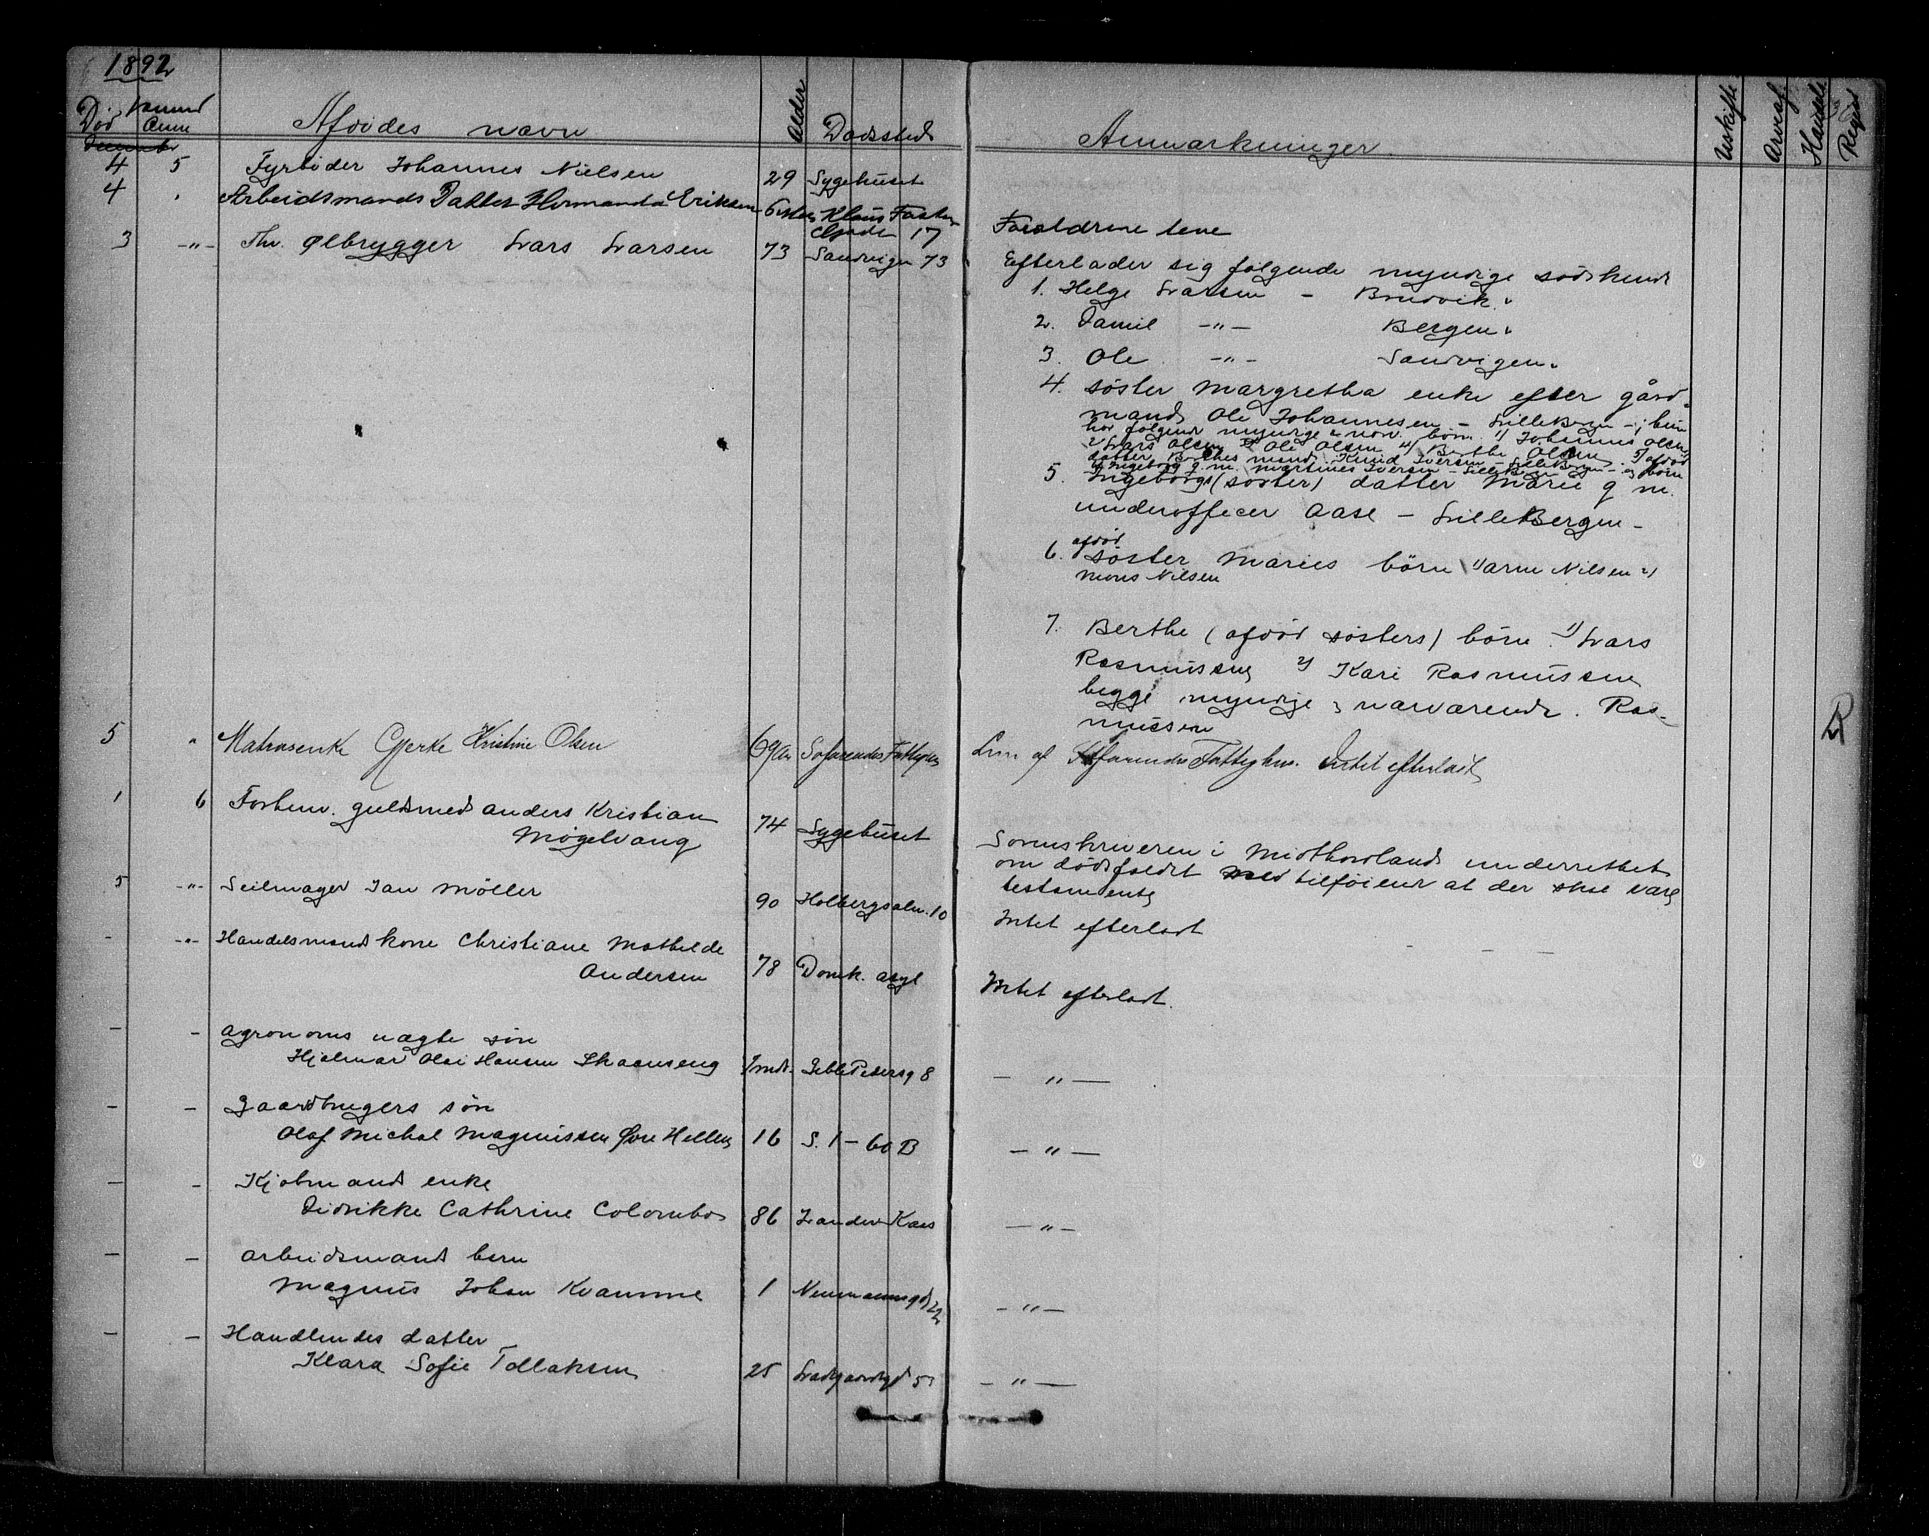 1892
Død Anm Afdødes navn Alder Dødssted Anmærkninger Arveaf. Regist
Decembr
4 5 Fyrbøder Johannes Nielsen 29 Sygehuset
4 Arbeidsmands Datter Hermanda Eriksen 6 Klaus Foster
gaden 17 Forældrene leve
3 -"- Fhv. Ølbrygger Lars Larsen 73 Sandvigen 73
Efterlader sig følgende myndige sødskend
1. Helge Larsen - Bruvik.
2. Daniel -"- Bergen.
3. Ole -"- Sandvigen.
4. søster Margretha enke efter gård-
mand Ole Johannesen - LilleBergen - hun
har følgende myndige børn. 1) Johannes Olsen
2) Lars Olsen 3) Ole Olsen 4) Berthe Olsen 5) afdød
datter Berthes mand Knud Iversen - LilleBergen - børn
Ingeborg g. m. Martines Iversen - LilleBergen -
5. Ingeborgs (søster) datter Marie g m.
underofficer Aase - LilleBergen -
6. afdød
søster Maries børn 1) Arne Nilsen 2)
Mons Nilsen
7. Berthe (afdød søsters) børn. 1) Lars
Rasmussen 2) Kari Rasmussen
begge myndige & nærværende. Ras-
mussen
5 " Matrosenke Gjerke Kristine Olsen 69 Søfarendes Fattighus Lem af Søfarendes Fattighus. Intet efterladt
1 6 Forhenv. guldsmed Anders Kristian
Møgelvang 74 Sygehuset
Sorenskriveren i Midthordland underrettet
om dødsfaldet med tilføiende at der skal være
testamente
5 -"- Seilmager Jan Møller 90 Holbergsalm. 10 Intet efterladt
- -"- Handelsmands kone Christiane Mathilde
Andersen 78 Domk. asyl Intet efterladt.
- - Agronoms ægte søn
Hjalmar Olai Hansen 7 mdr. Jekte Petersg 8 - " -
- - Gaardbrugers søn
Olaf Michal Magnussen Øvre Hellen 16 S. 1 - 60 B - " -
- - Kjøbmands enke
Didrikke Cathrine Colombos 86 Zander Kaas - " -
- - Arbeidsmands barn
Magnus Johan Kvamme 1 Neumannsgd 22 - " -
- - Handlendes datter
Klara Sofie Tollaksen 25 Ladegaardsgd 51 - " -
R